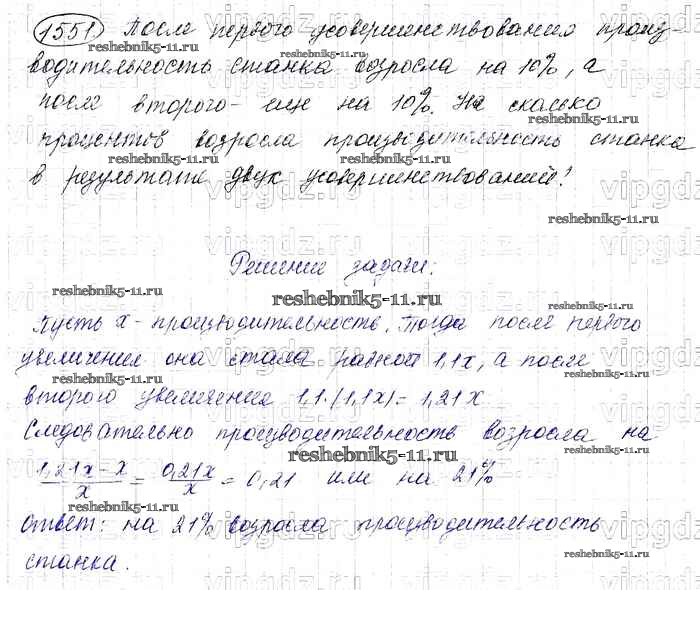 1551) После первого усовершенствования произ-
водительность станка возросла на 10%, а
после второго - еще на 10%. На сколько
процентов возросла производительность станка
в результате двух усовершенствований?
Решение задачи:
Пусть x - производительность. Тогда после первого
увеличения она стала равной 1,1x, а после
второго увеличения 1,1·(1,1x) = 1,21x
Следовательно производительность возросла на
(1,21x-x)/x = 0,21x/x = 0,21 или на 21%
Ответ: на 21% возросла производительность
станка.
reshebnik5-11.ru
vipgdz.ru